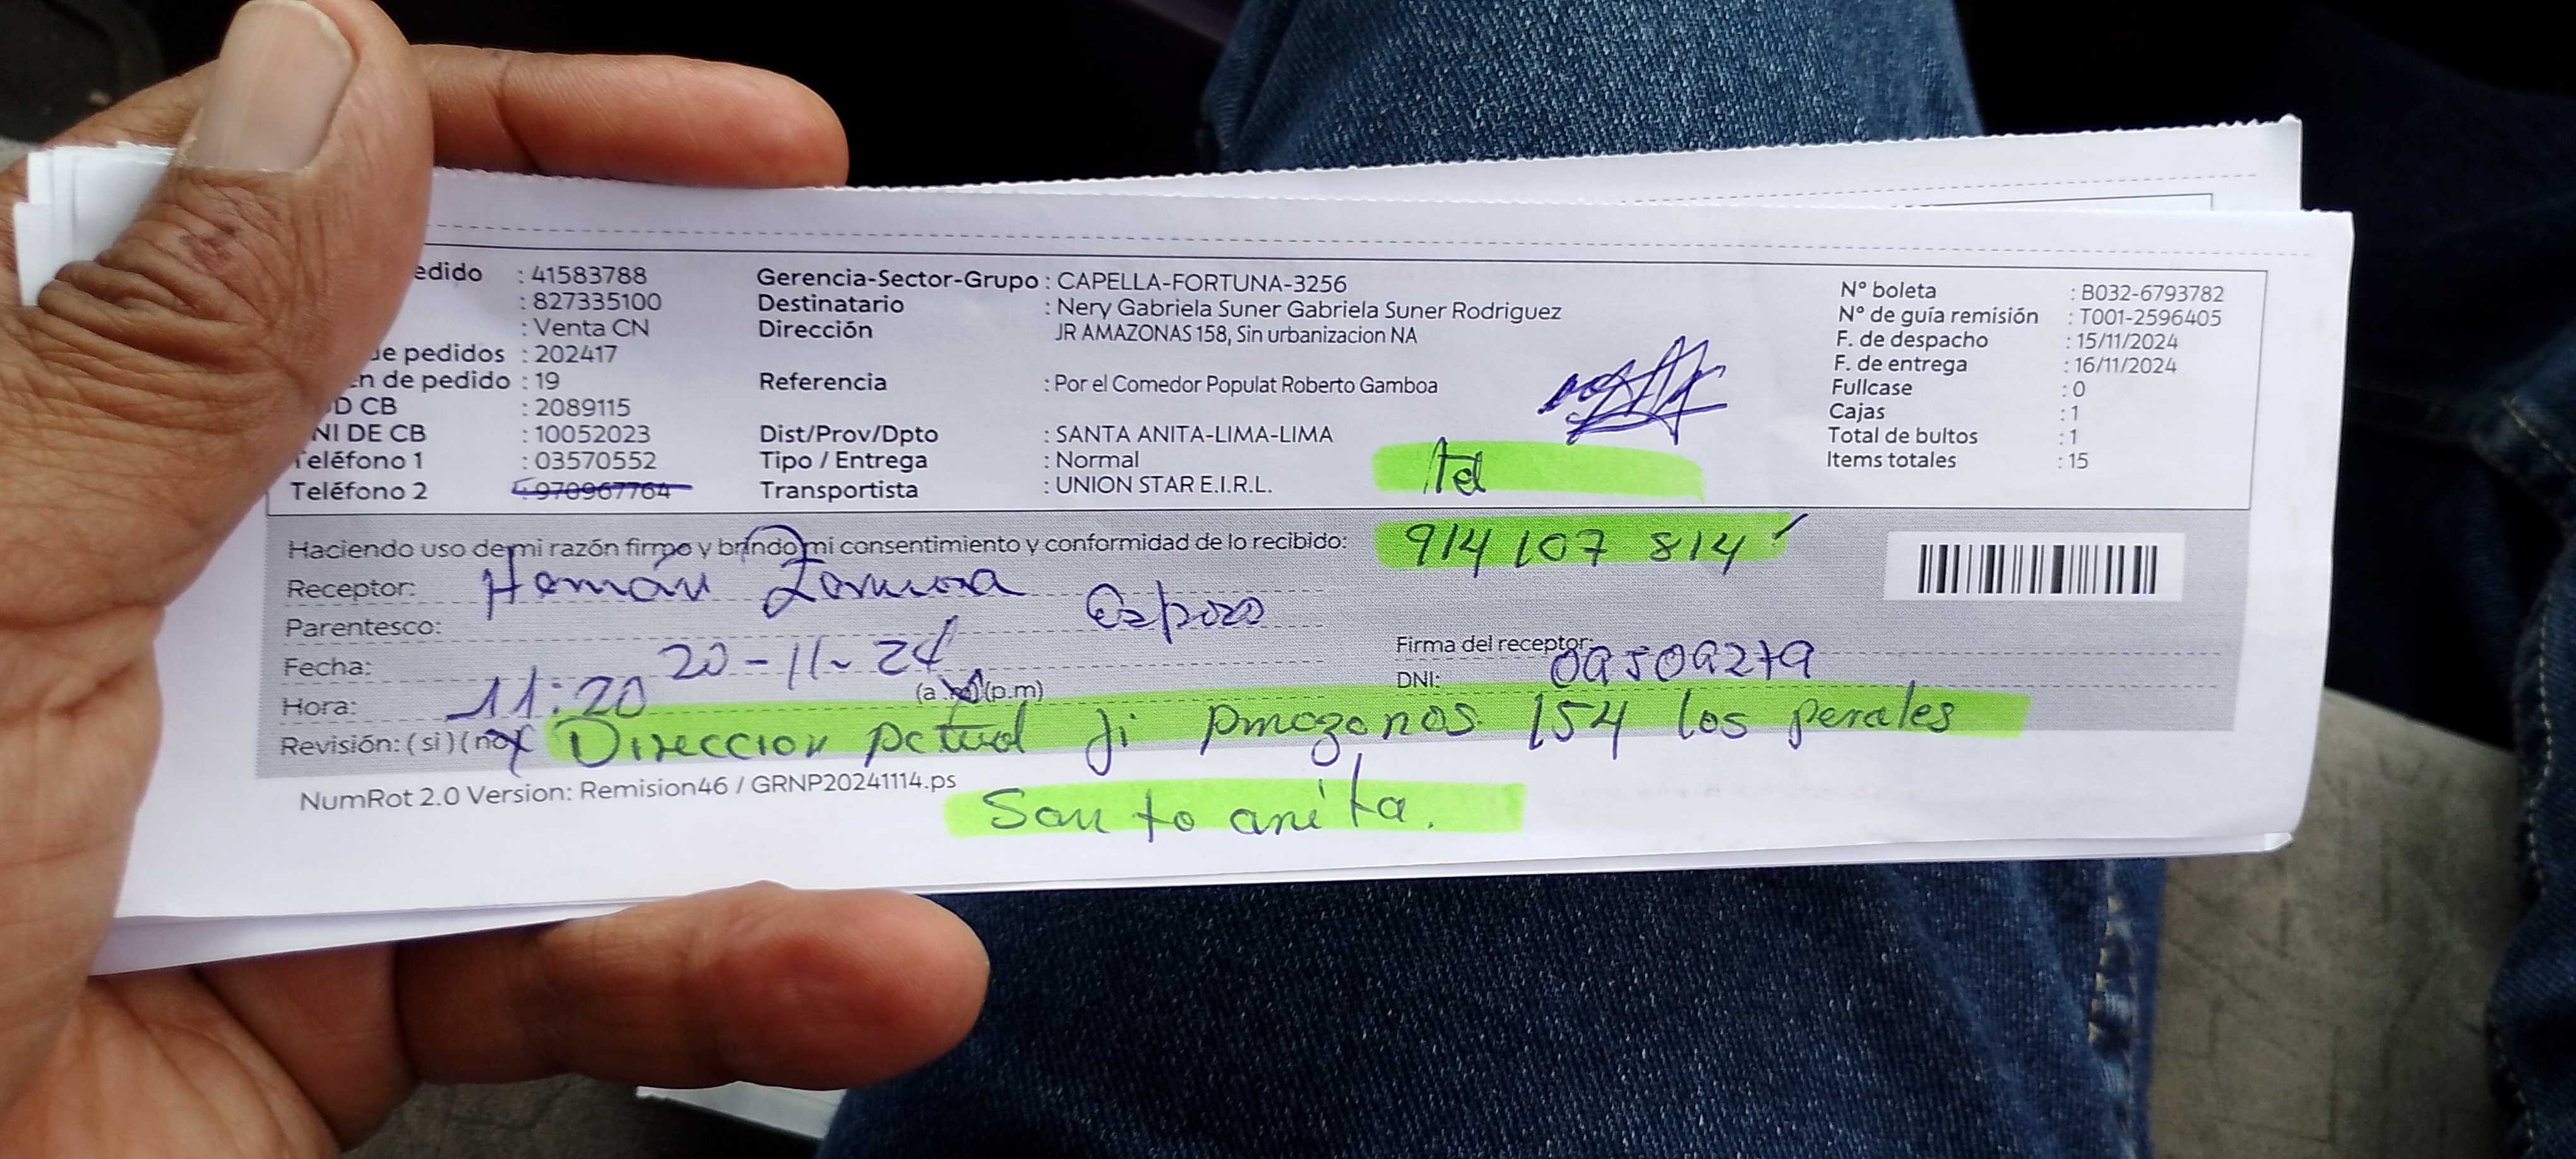 edido : 41583788
: 827335100
: Venta CN
de pedidos : 202417
n de pedido : 19
D CB : 2089115
NI DE CB : 10052023
Teléfono 1 : 03570552
Teléfono 2 : 970967764
Gerencia-Sector-Grupo : CAPELLA-FORTUNA-3256
Destinatario : Nery Gabriela Suner Gabriela Suner Rodriguez
Dirección JR AMAZONAS 158, Sin urbanizacion NA
Referencia : Por el Comedor Populat Roberto Gamboa
Dist/Prov/Dpto : SANTA ANITA-LIMA-LIMA
Tipo / Entrega : Normal
Transportista : UNION STAR E.I.R.L.
Nº boleta : B032-6793782
Nº de guía remisión : T001-2596405
F. de despacho : 15/11/2024
F. de entrega : 16/11/2024
Fullcase : 0
Cajas : 1
Total de bultos : 1
Items totales : 15
Tel
914 107 814
Haciendo uso de mi razón firmo y brindo mi consentimiento y conformidad de lo recibido:
Receptor: Hernán Zamora
Parentesco: Esposo
Fecha: 20-11-24
Hora: 11:20 (a.m) (p.m)
Revisión: (si) (no)
Firma del receptor:
DNI: 09509279
Direccion actual Jr Amazonas 154 los perales
Santa anita.
NumRot 2.0 Version: Remision46 / GRNP20241114.ps